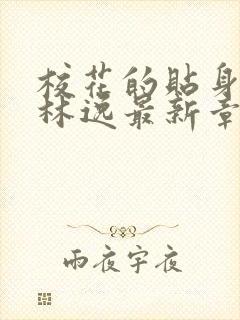 校花的贴身
林逸最新章
雨夜宇夜